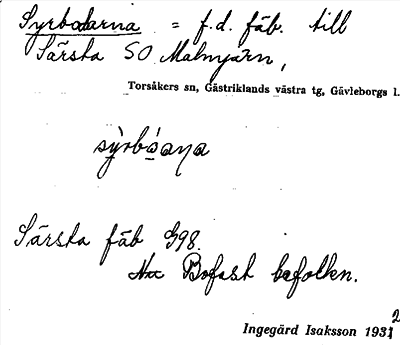 Syrbodarna = f.d. fäb. till
Särsta SO Malmjärn,
Torsåkers sn, Gästriklands västra tg, Gävleborgs l.
sỳrbóaṇa
Särsta fäb G98.
Nu Bofast befolkn.
Ingegärd Isaksson 1932